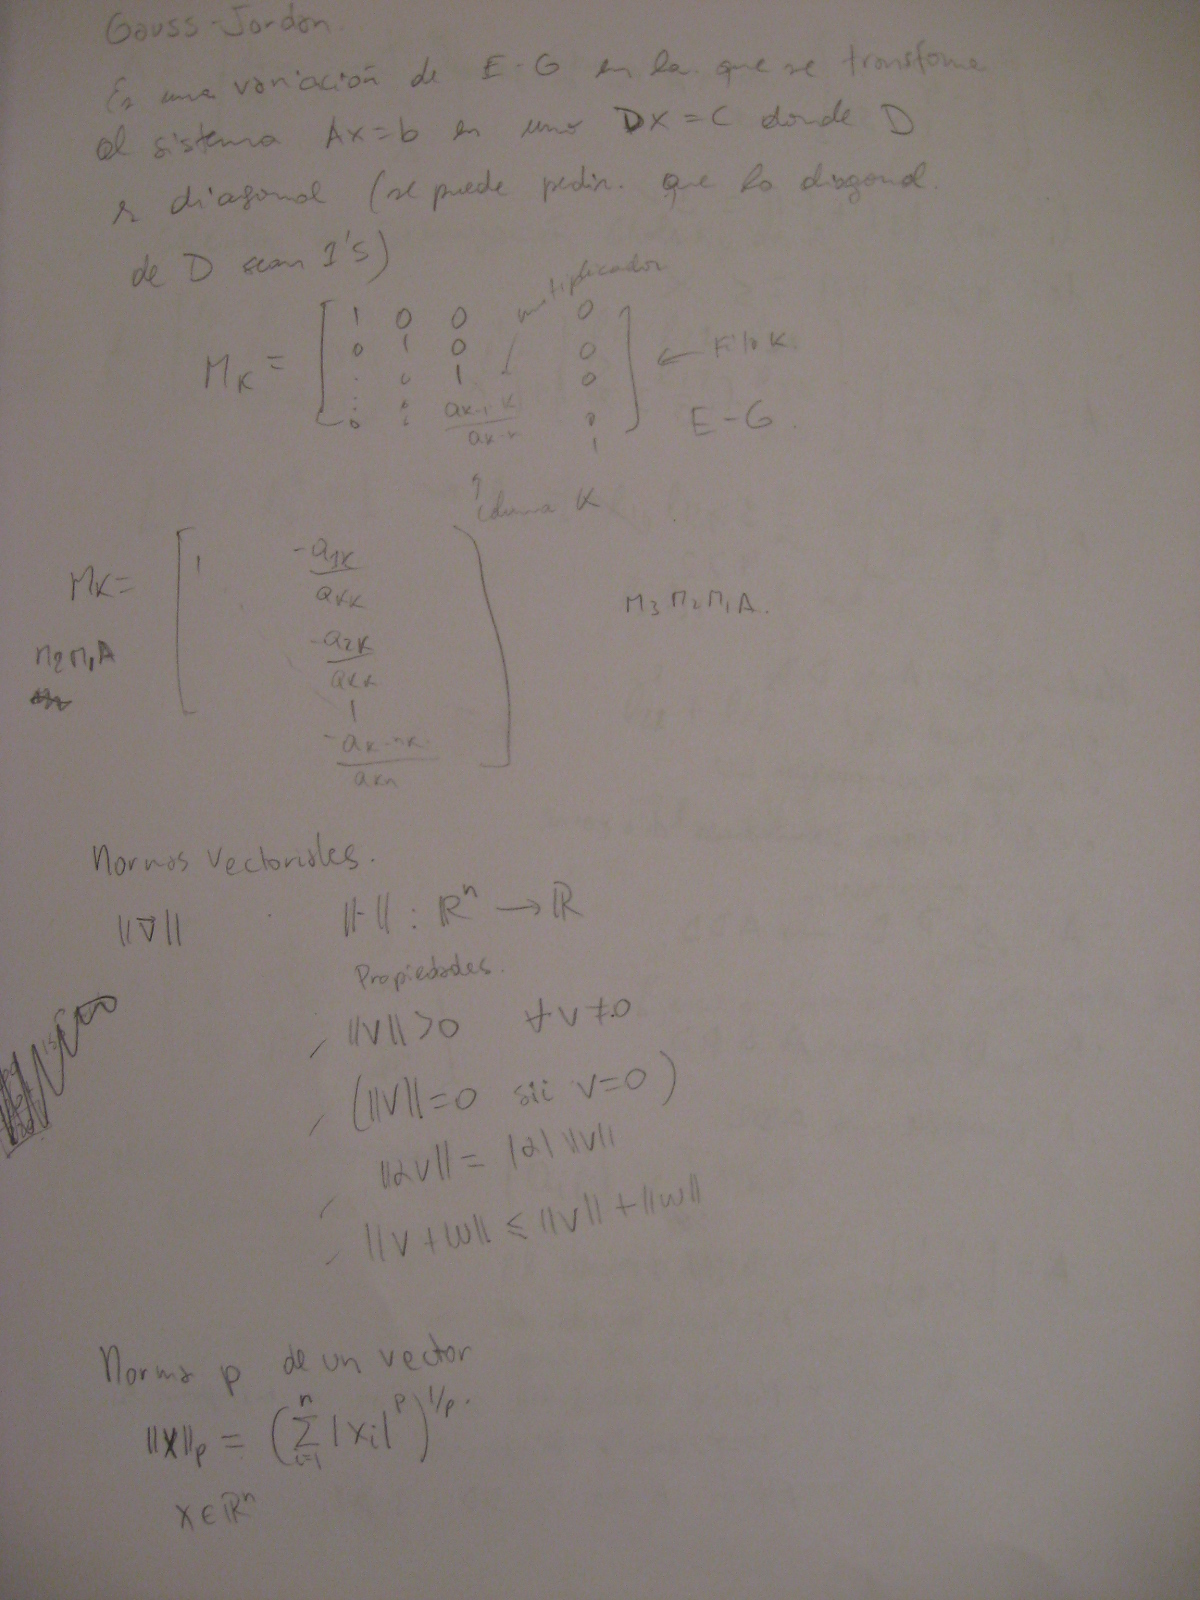 Gauss-Jordan.
Es una variación de E-G en la que se transforma
el sistema Ax=b en uno Dx=C donde D
es diagonal (se puede pedir. que la diagonal.
de D sean 1's)
multiplicador
M_K = [ 1 0 0 0
0 1 0 0
. 0 1 0
: 0 a_{K-1 K}/a_{K-K} 0
0 1 ] ← Fila K.
E-G.
↑ columna K
M_K = [ 1 -a_{1K}/a_{KK}
-a_{2K}/a_{KK}
1
M_3 M_2 M_1 A.
M_2 M_1 A
Normas vectoriales.
||v|| ||·|| : ℝ^n → ℝ
Propiedades.
||v|| >0 ∀ v ≠0
(||v||=0 sii v=0)
||αv|| = |α| ||v||
||v+w|| ≤ ||v|| + ||w||
Norma p de un vector
||x||_p = (∑_{i=1}^n |xi|^p)^{1/p}.
x ∈ ℝ^n